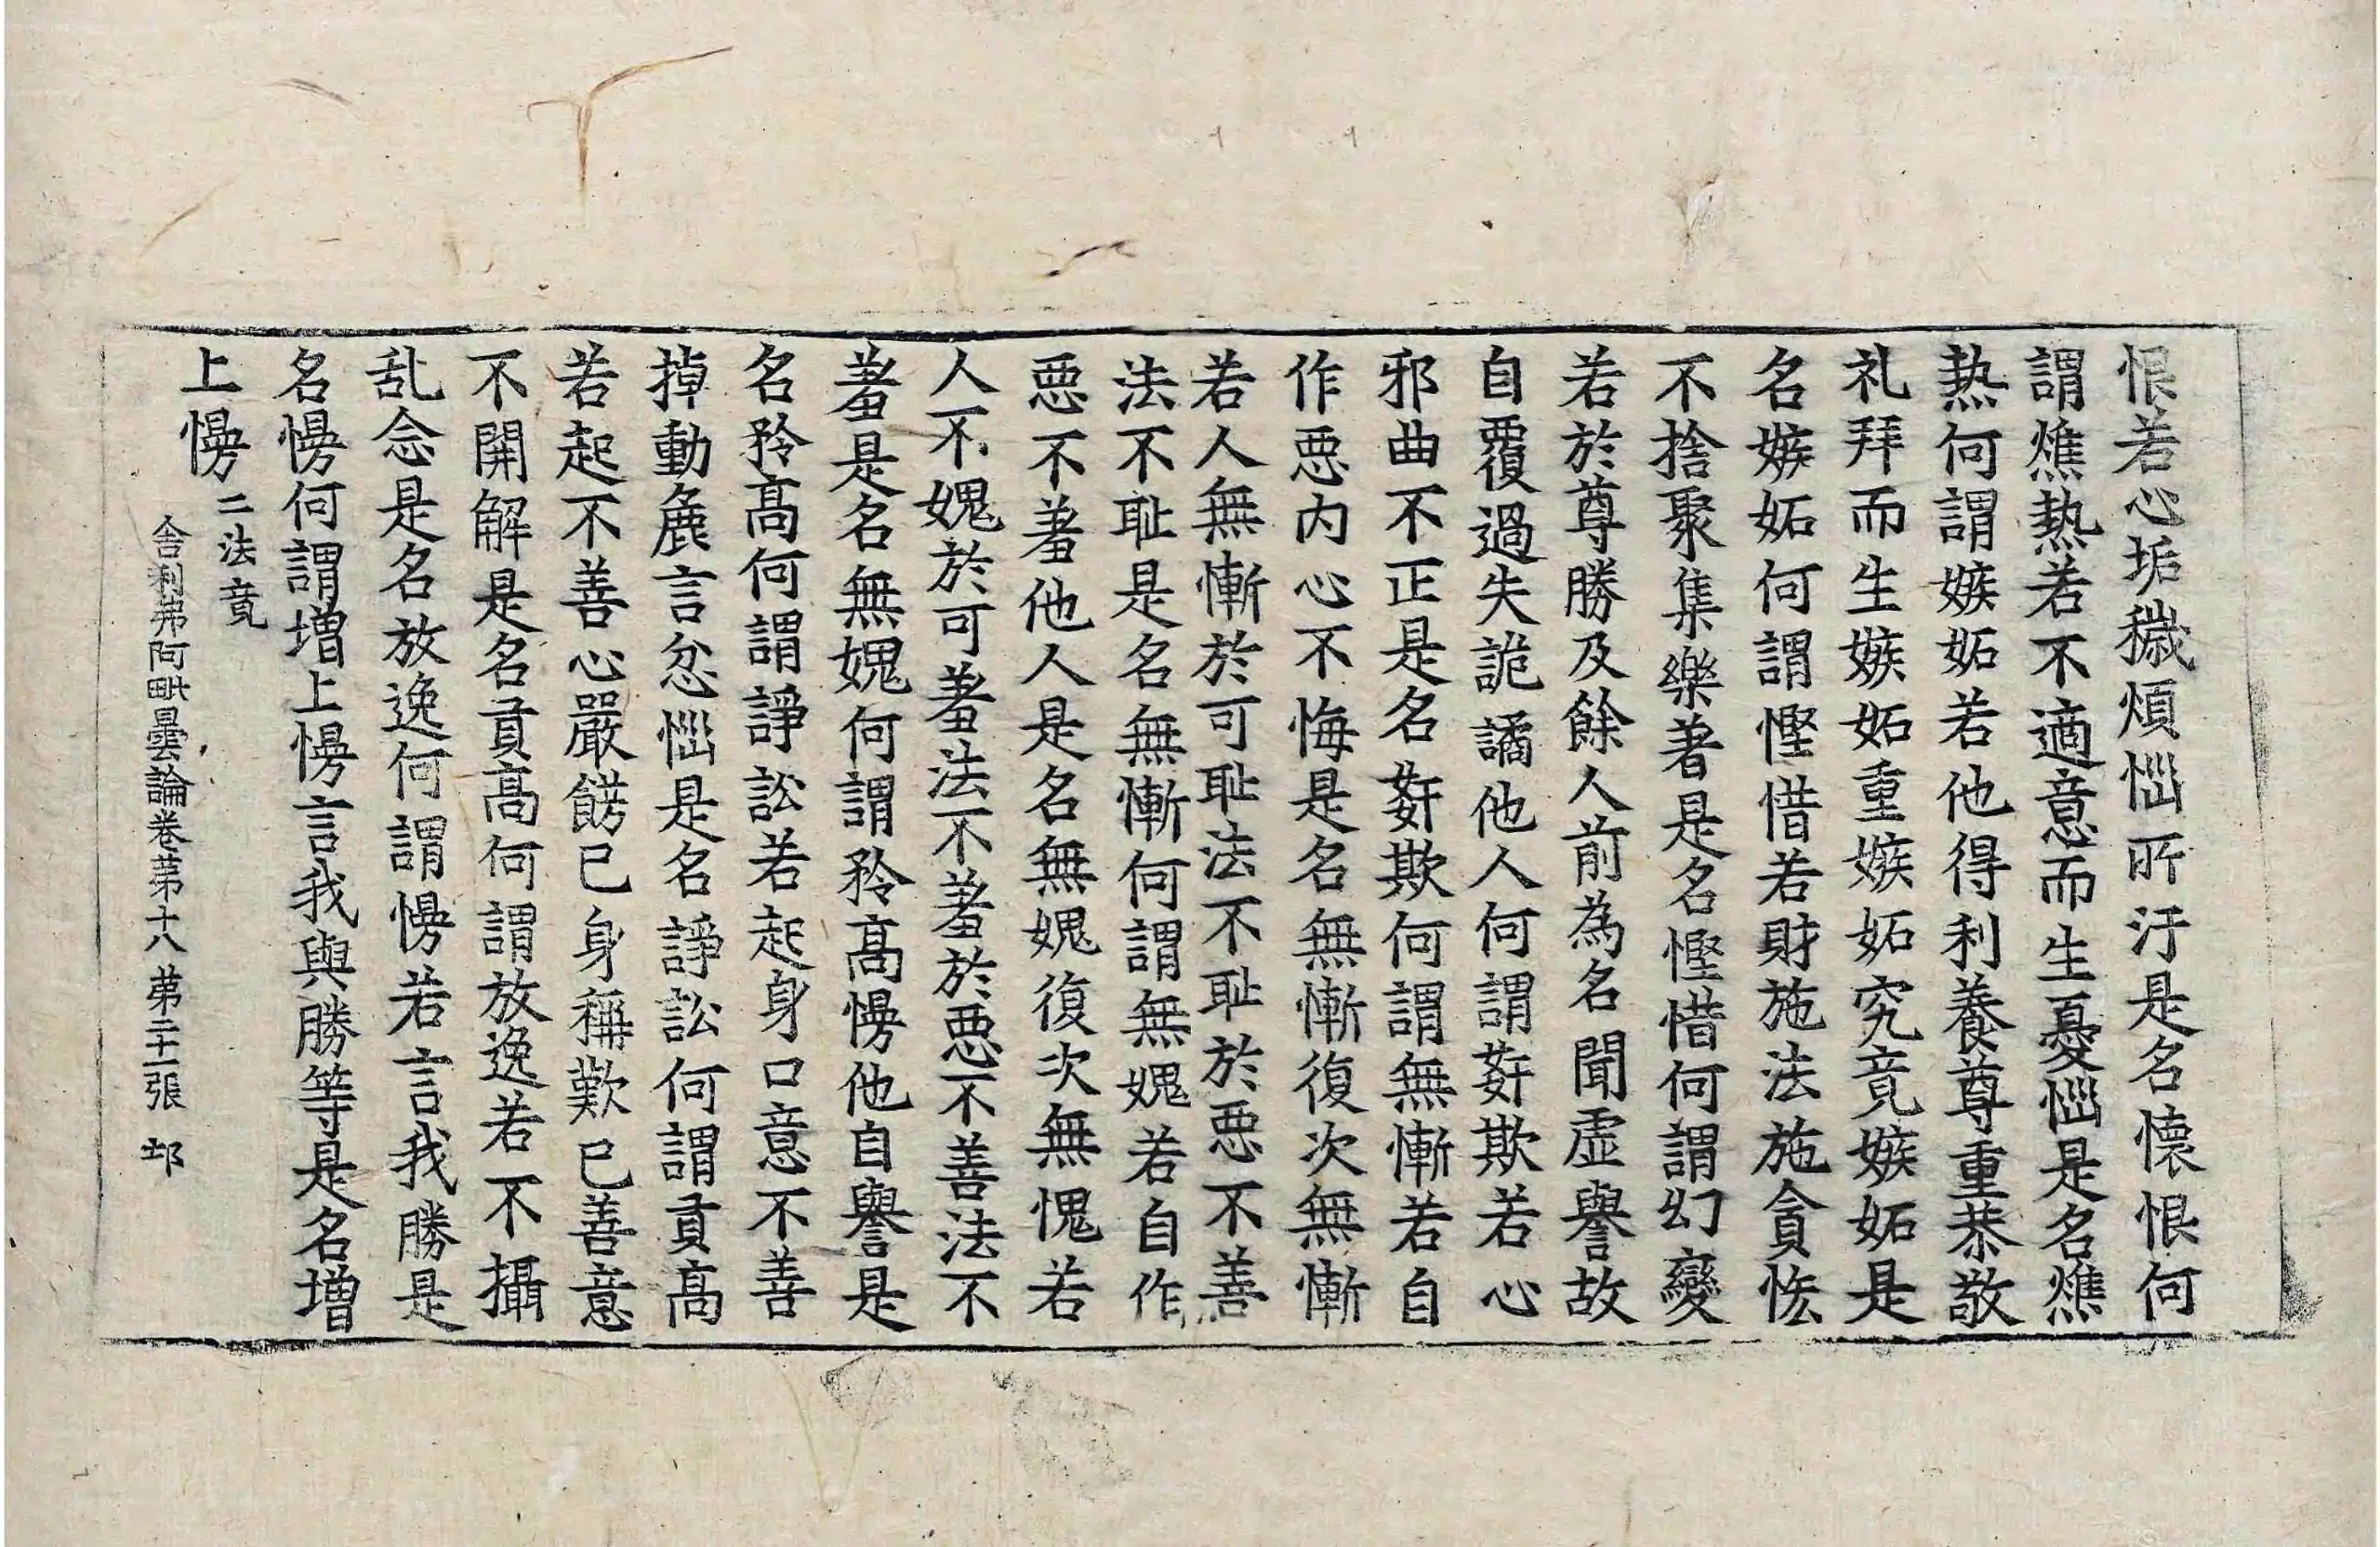 恨若心垢穢煩惱所汙是名懷恨何
謂燋熱若不適意而生憂惱是名燋
熱何謂嫉妬若他得利養尊重恭敬
礼拜而生嫉妬重嫉妬究竟嫉妬是
名嫉妬何謂慳惜若財施法施貪恡
不捨聚集樂著是名慳惜何謂幻變
若於尊勝及餘人前為名聞虛譽故
自覆過失詭譎他人何謂姧欺若心
邪曲不正是名姧欺何謂無慚若自
作惡内心不悔是名無慚復次無慚
若人無慚於可恥法不恥於惡不善
法不恥是名無慚何謂無媿若自作
惡不羞他人是名無媿復次無愧若
人不媿於可羞法不羞於惡不善法不
羞是名無媿何謂矜高慢他自譽是
名矜高何謂諍訟若起身口意不善
掉動麁言忿惱是名諍訟何謂貢高
若起不善心嚴餝已身稱歎已善意
不開解是名貢高何謂放逸若不攝
乱念是名放逸何謂慢若言我勝是
名慢何謂増上慢言我與勝等是名増
上慢 二法竟
舎利弗阿毗曇論卷苐十八 苐二十一張 𨚗